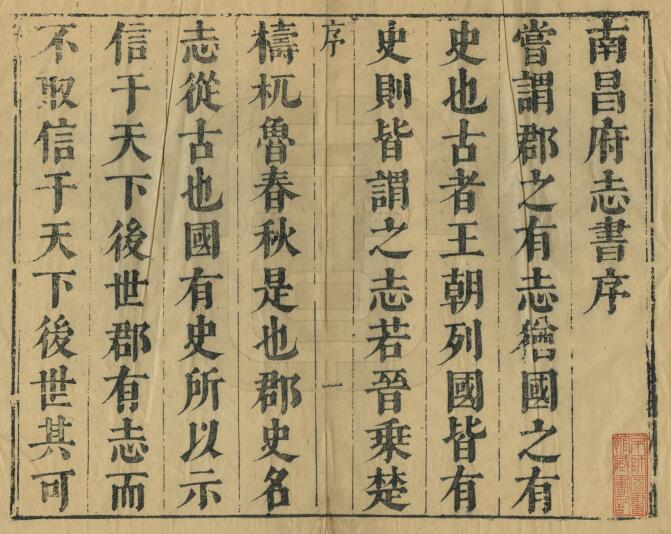 南昌府志書序
嘗謂郡之有志猶國之有
史也古者王朝列國皆有
史則皆謂之志若晉乗楚
序
一
檮杌魯春秋是也郡史名
志從古也國有史所以示
信于天下後世郡有志而
不取信于天下後世其可